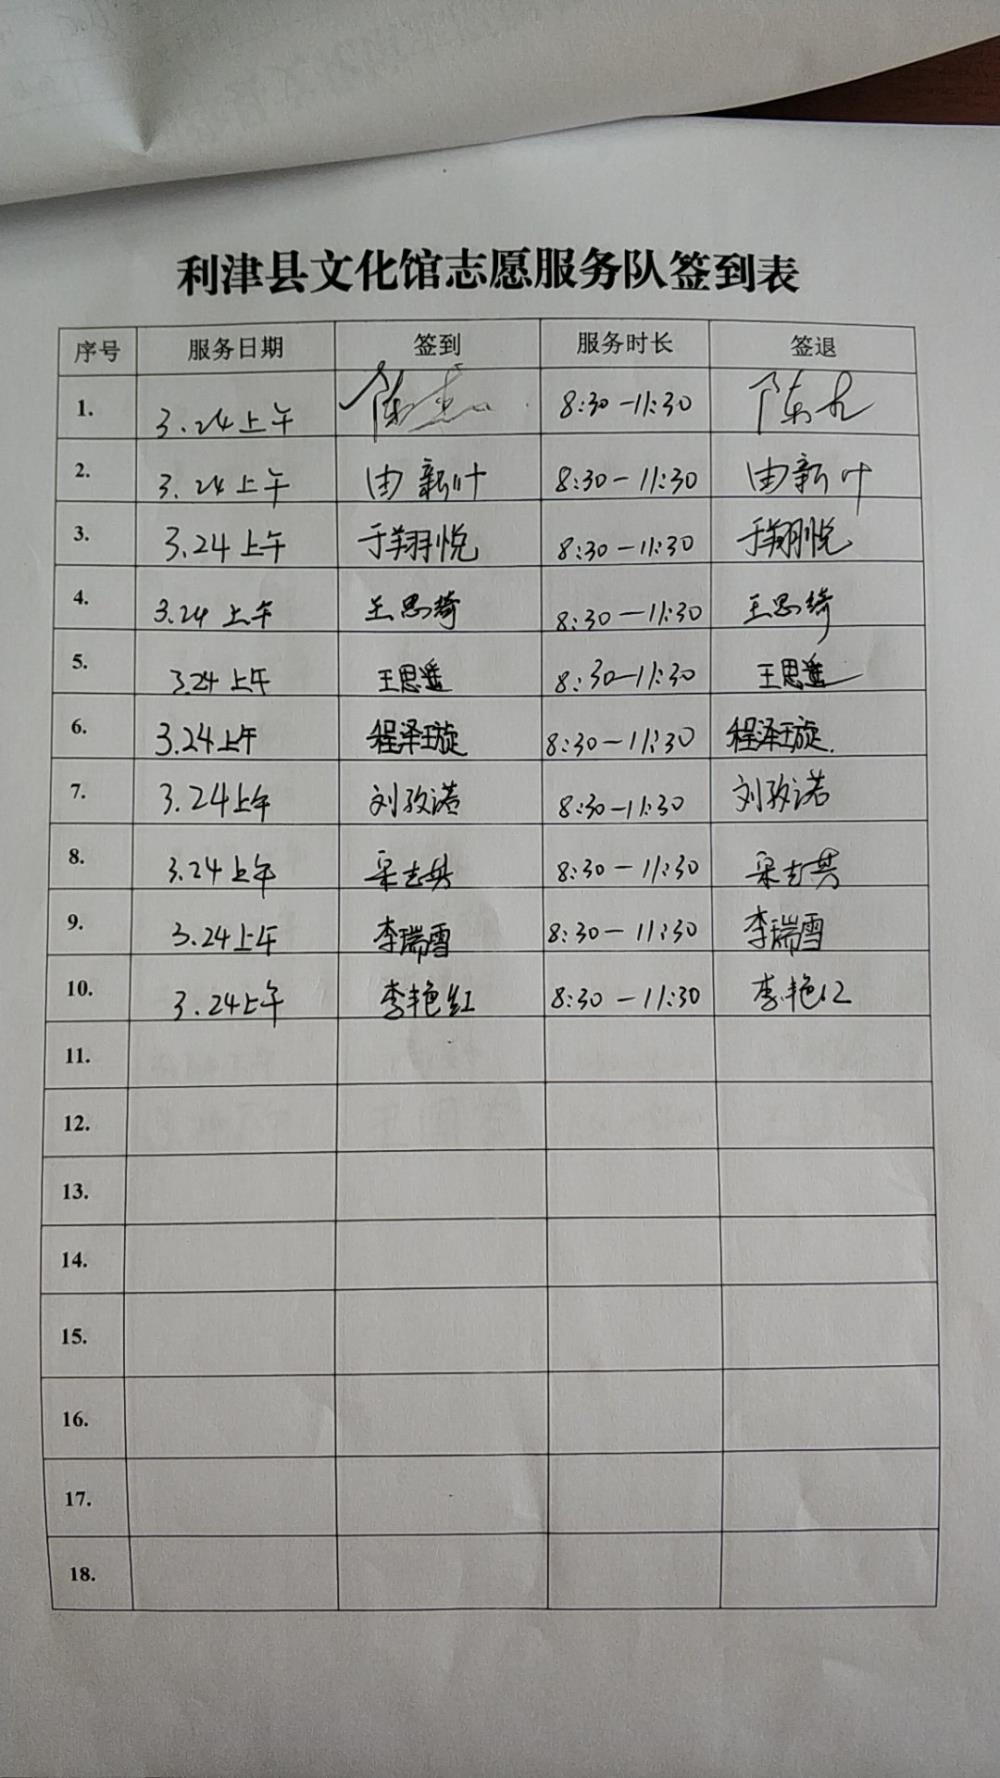 利津县文化馆志愿服务队签到表
序号 服务日期 签到 服务时长 签退
1. 3.24上午 陈 8:30-11:30 陈
2. 3.24上午 由新叶 8:30-11:30 由新叶
3. 3.24上午 于翔悦 8:30-11:30 于翔悦
4. 3.24上午 王思绮 8:30-11:30 王思绮
5. 3.24上午 王思遥 8:30-11:30 王思遥
6. 3.24上午 程泽璇 8:30-11:30 程泽璇.
7. 3.24上午 刘孜诺 8:30-11:30 刘孜诺
8. 3.24上午 8:30-11:30
9. 3.24上午 李瑞雪 8:30-11:30 李瑞雪
10. 3.24上午 李艳红 8:30-11:30 李艳红
11.
12.
13.
14.
15.
16.
17.
18.